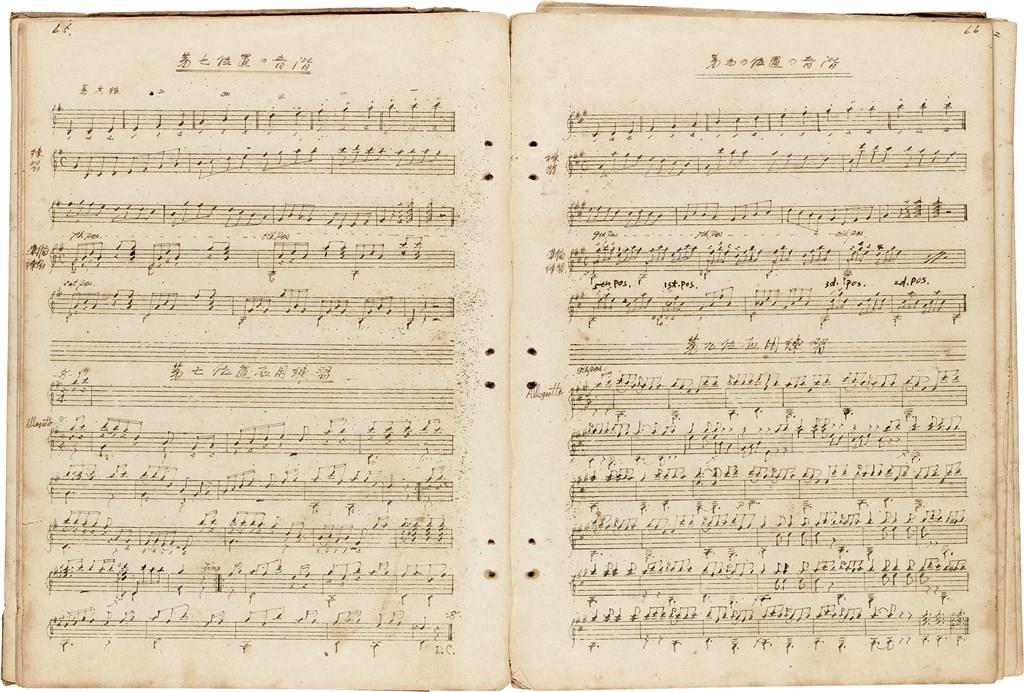 65.
第七位置の音階
第六絃
練習
7th pos. 5th pos.
準備練習
1st pos.
第七位置応用練習
Allegretto
Fine
D.C.
66
第九の位置の音階
練習
9th pos. 7th pos. 5th pos.
準備練習
5th. pos. 1st. pos. 3d. pos. 2d. pos.
第九位応用練習
9th pos.
Allegretto